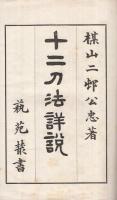 楳山二邨公忠著
十二刀法詳説
藝苑叢書